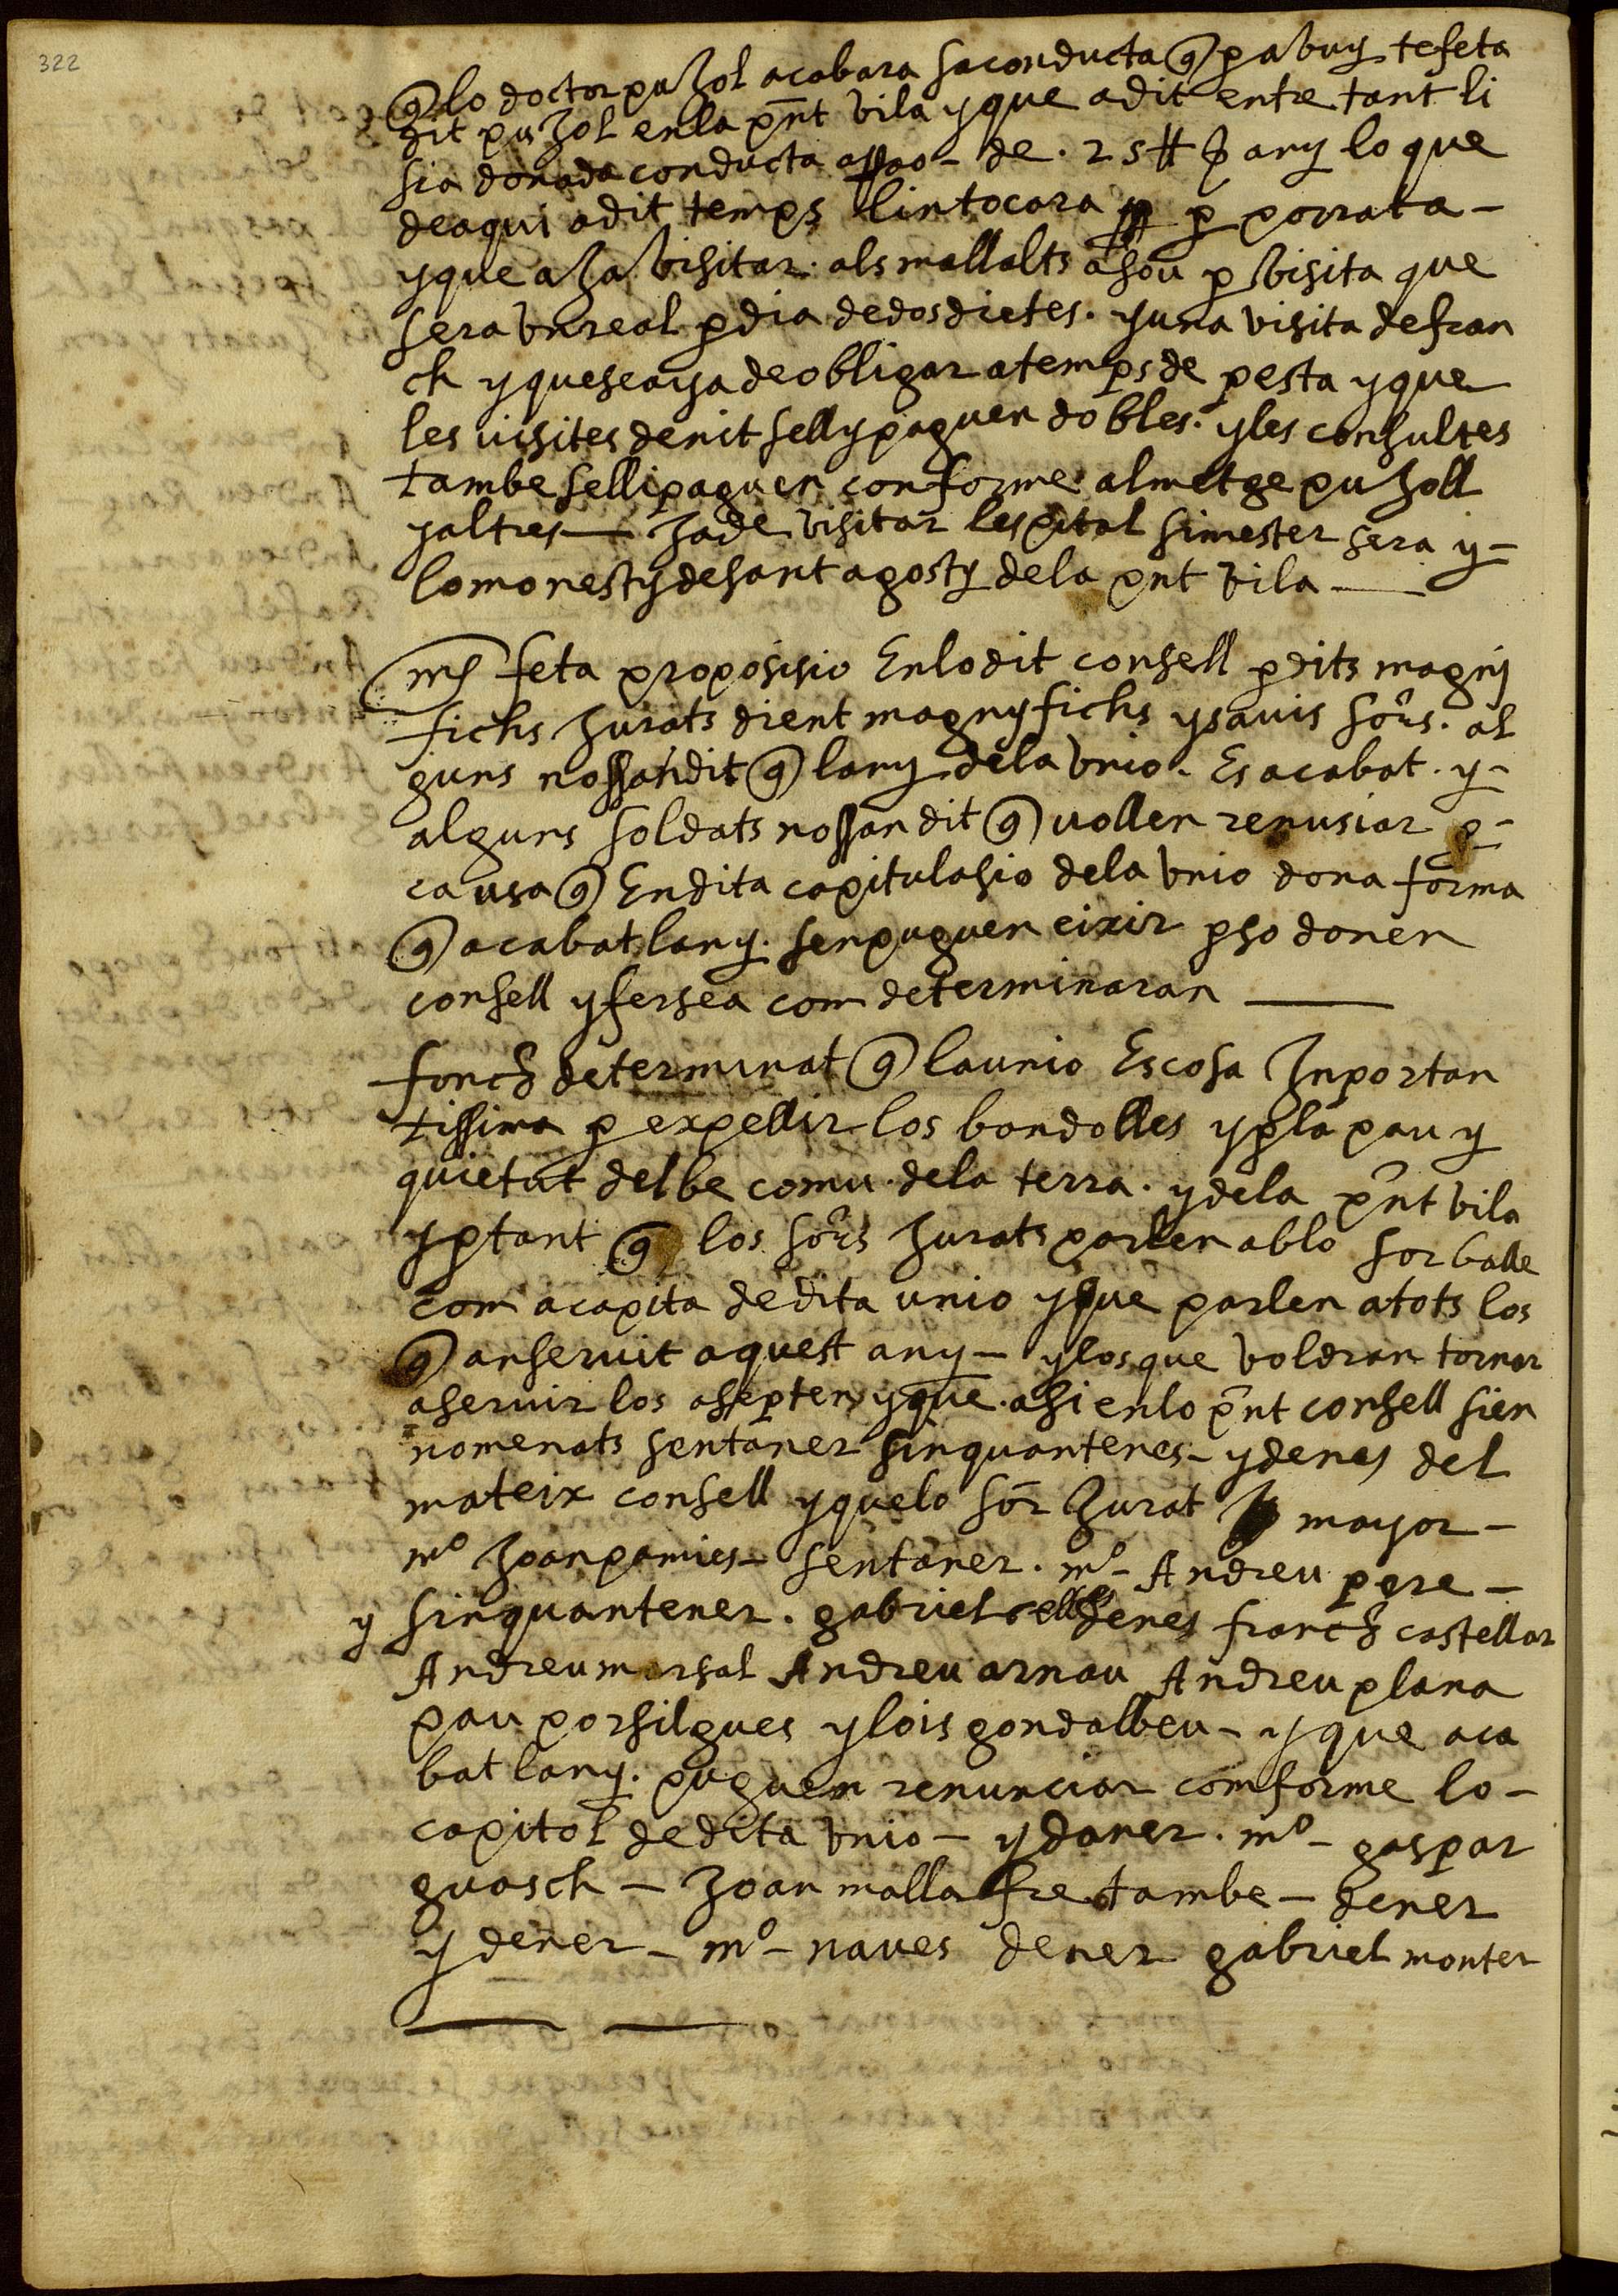 322
q lo doctor puJol acabara sa conducta q p abuy te feta
dit puJol en la pnt vila y que a dit entre tant li
sia donada conducta de . 25 ll p any lo que
de aqui a dit temps lin tocara p porrata -
y que aJa visitar . als mallalts a sou p visita que
sera un real p dia de dos dietes . y una visita de fran
ch y que se aya de obligar a temps de pesta y que
les visites de nit selly paguen dobles . y les consultes
tambe selli paguen conforme al metge puJoll
y altres — Ja de visitar lespital si mester sera y -
lo monesty de sant agosty de la pnt vila —
ms feta proposisio En lo dit consell p dits magny
fichs Jurats dient magnyfichs y savis sors . al
guns nossan dit q lany de la unio . Es acabat . y -
alguns soldats nossan dit q vollen renusiar p -
causa q En dita capitulasio de la unio dona forma
q acabat lany . sen puguen eixir p so donen
consell y fersea com determinaran —
fonch determinat q la unio Es cosa Inportan
tissima p expellir los bandolles y p la pau y
quietut del be comu . de la terra . y de la pnt vila
y p tant q los sors Jurats parlen ab lo sor balle
com a capita de dita unio y que parlen a tots los
q an servit aquest any - y los que voldran tornar
a servir los assepten y que . asi en lo pnt consell sien
nomenats sentaner sinquantenes - y denes del
mateix consell y que lo sor Jurat mayor -
mo Joan pamies - sentaner . mo - Andreu pere -
y sinquantener . gabriel denes franch castellar
Andreu marsal Andreu arnau Andreu plana
pau porsilgues y lois gondalbeu - y que aca
bat lany . puguen renunciar comforme lo -
capitol de dita unio - y daner . mo - gaspar
guasch - Joan mallafre tambe - dener
y dener - mo - naves dener gabriel monter